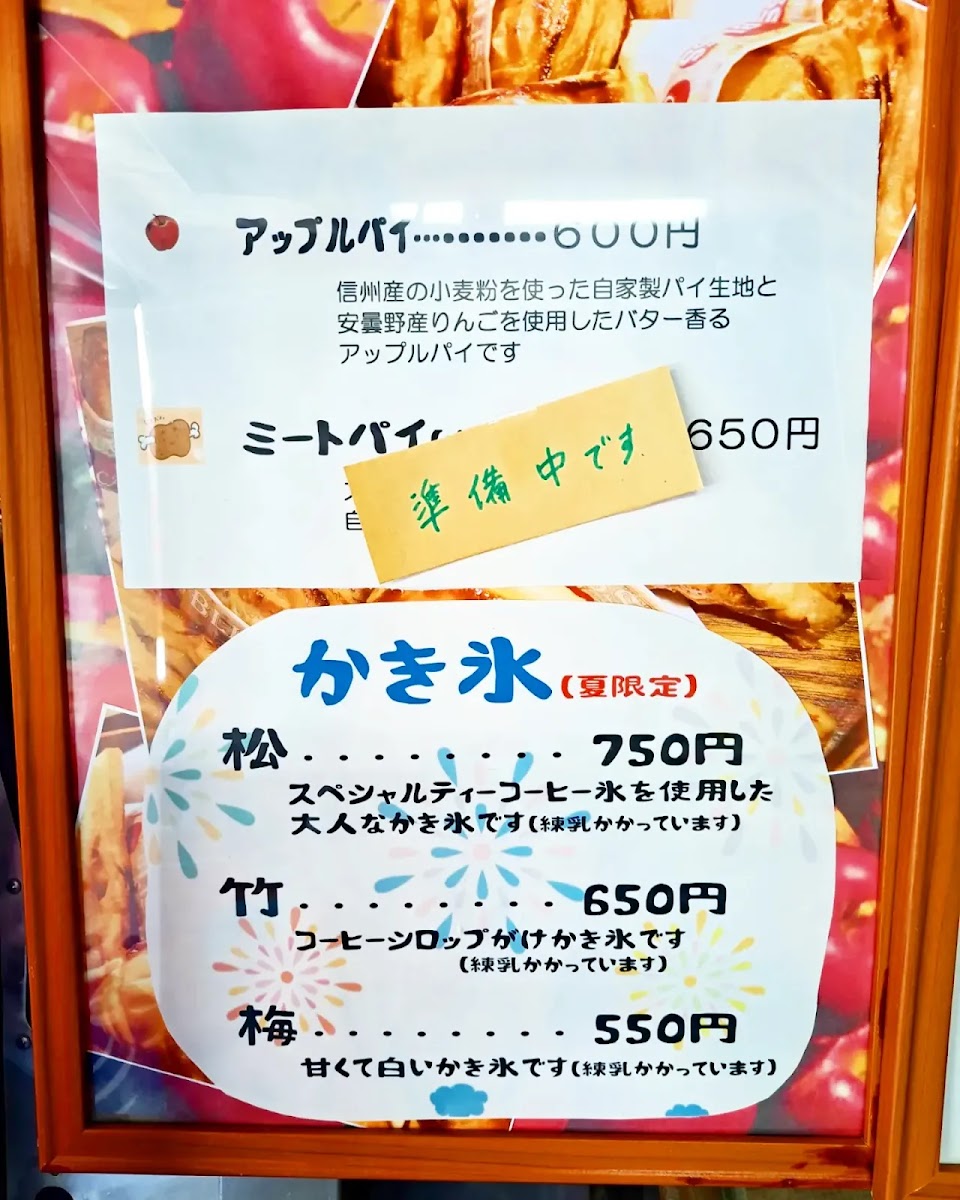 アップルパイ‥‥‥‥‥600円
信州産の小麦粉を使った自家製パイ生地と
安曇野産りんごを使用したバター香る
アップルパイです
ミートパイ 650円
準備中です
自
かき氷(夏限定)
松........750円
スペシャルティーコーヒー氷を使用した
大人なかき氷です(練乳かかっています)
竹........650円
コーヒーシロップがけかき氷です
(練乳かかっています)
梅........550円
甘くて白いかき氷です(練乳かかっています)